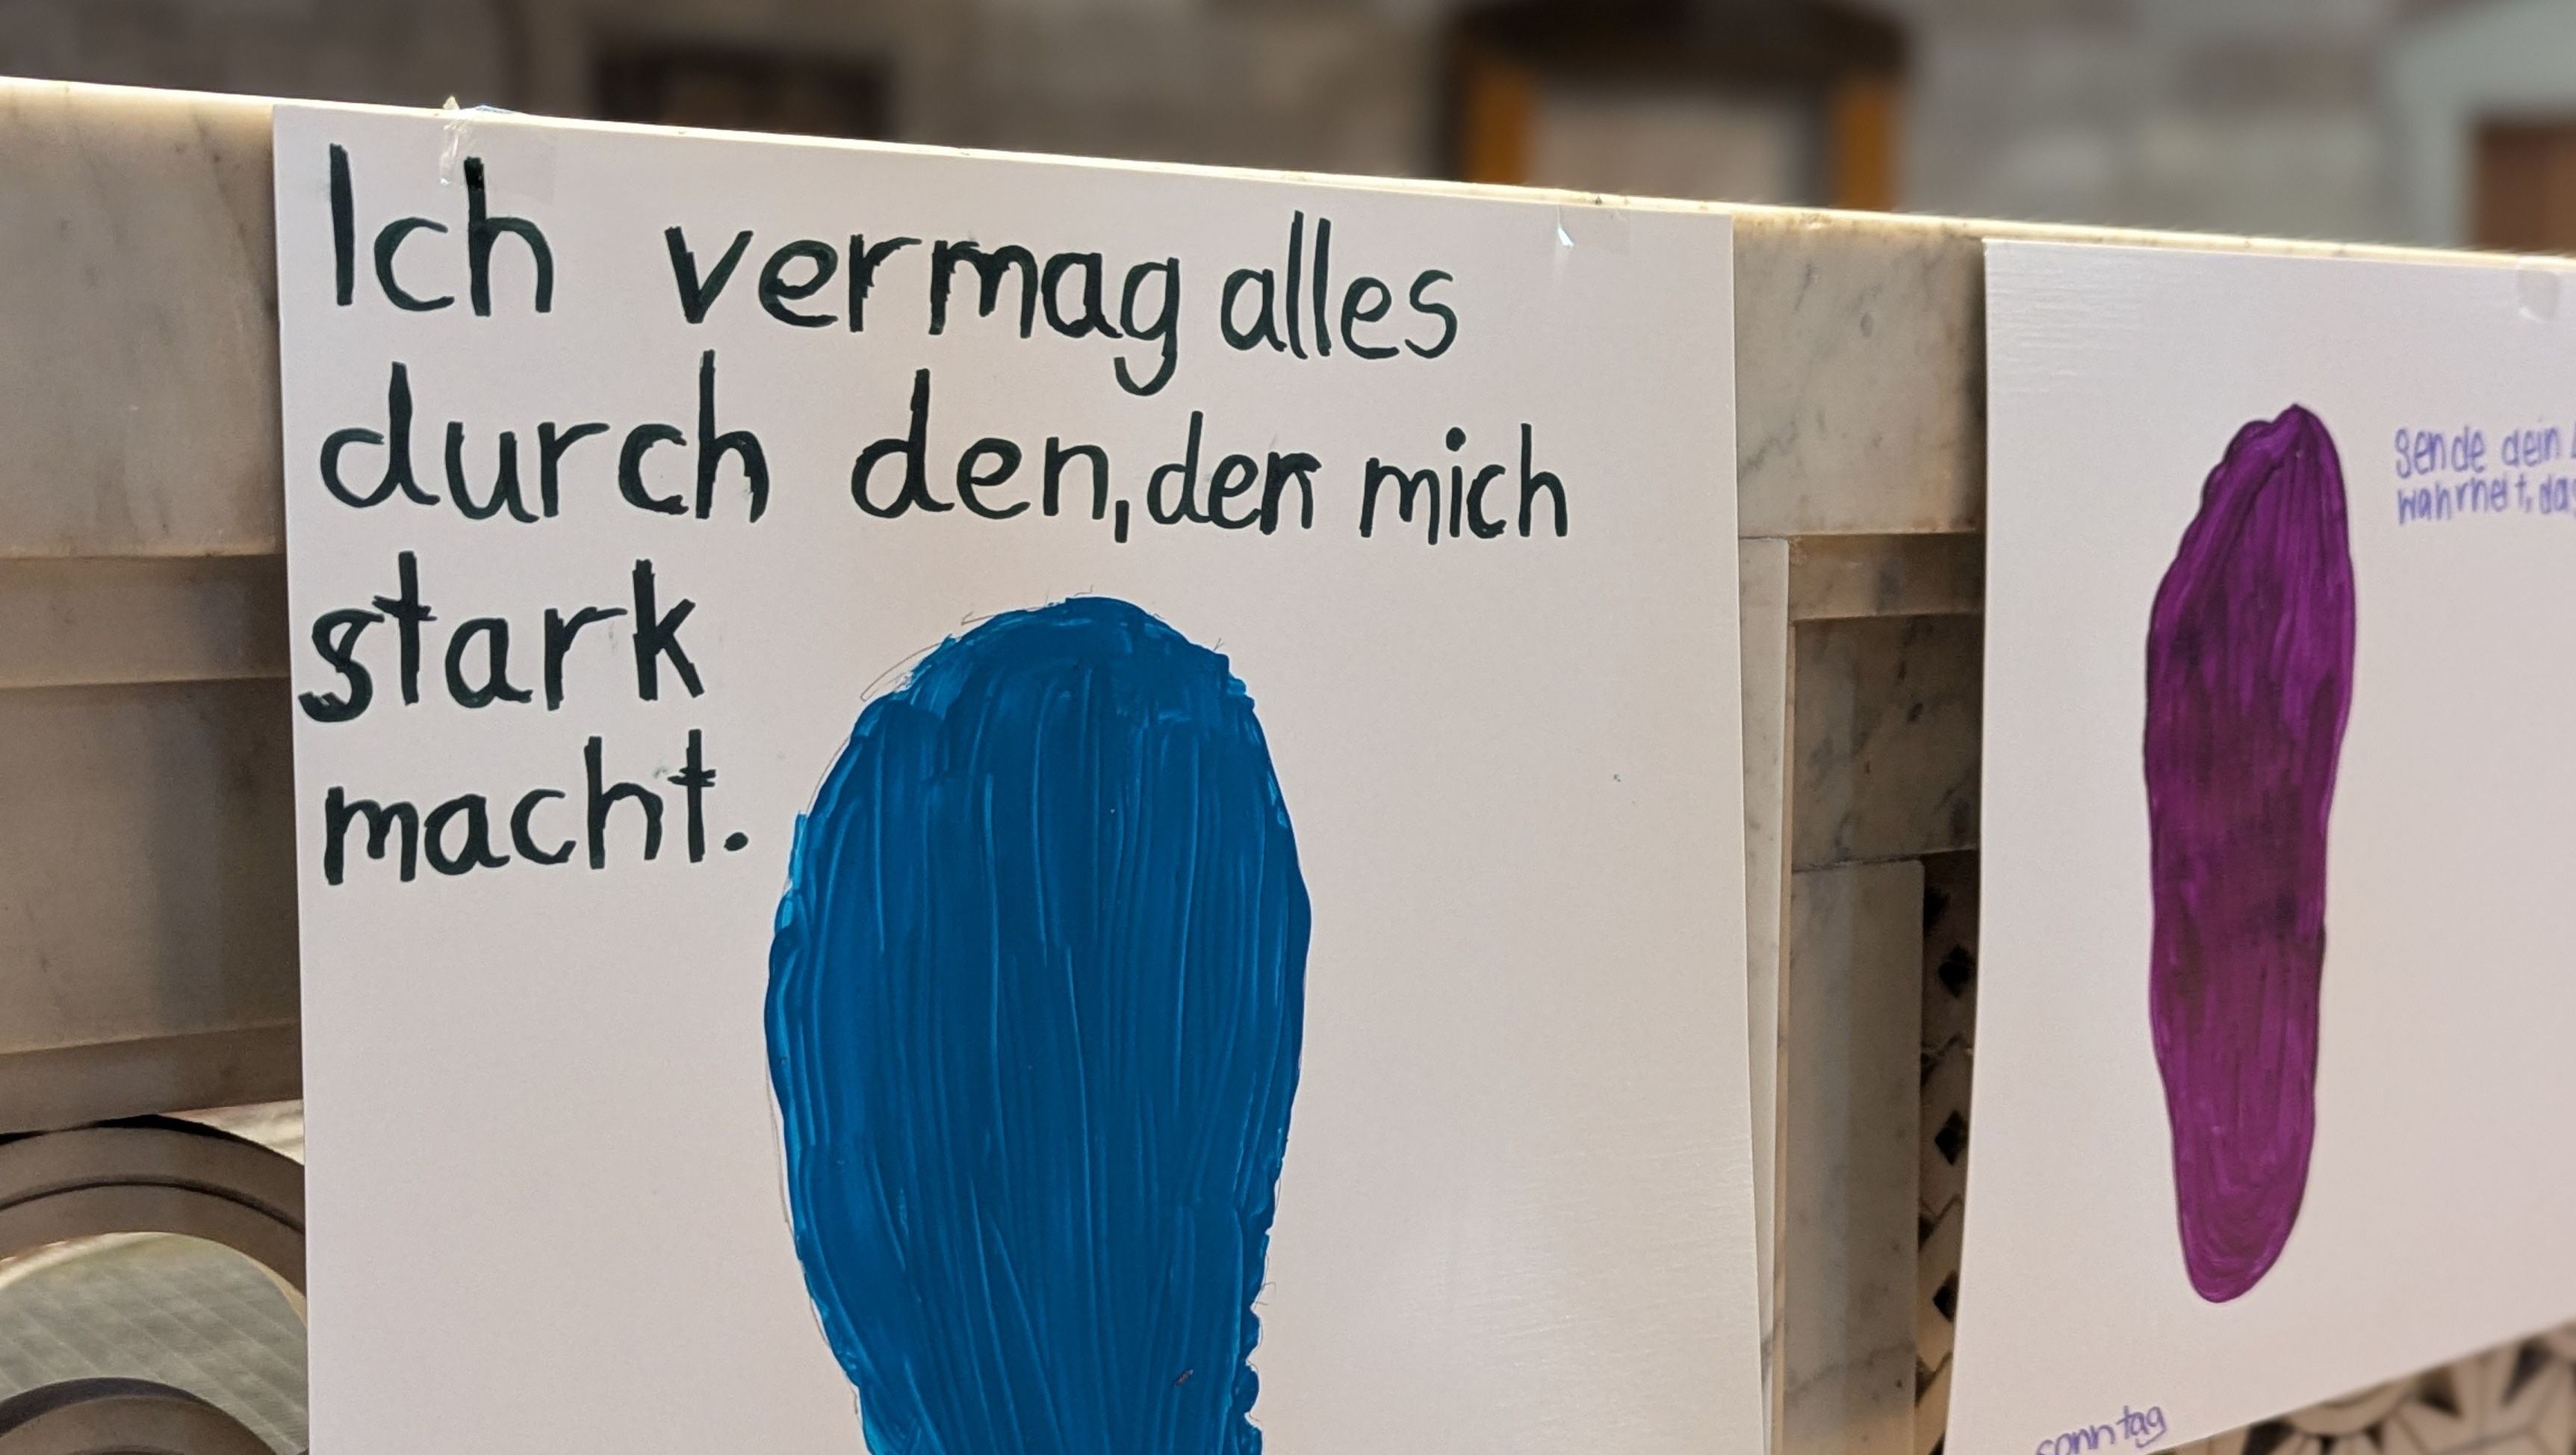 Ich vermag alles
durch den, der mich
stark
macht.
Sende dein
wahrheit, das
sonntag